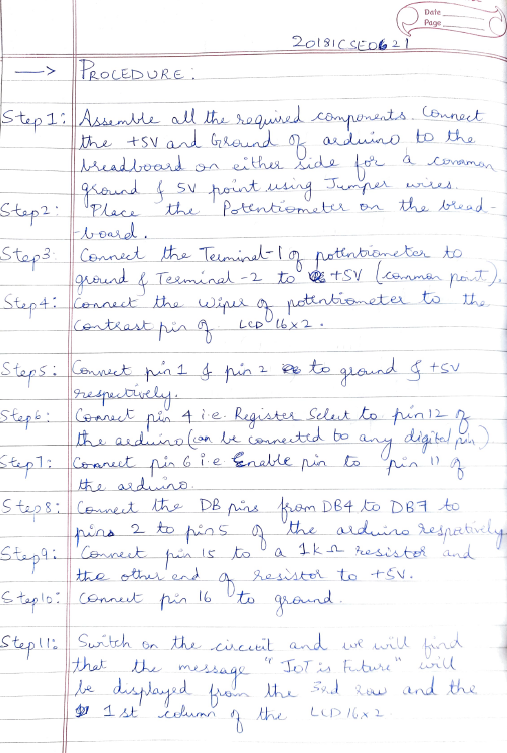 Date
Page
20181CSE0621
→ PROCEDURE:
Step1: Assemble all the required components. Connect
the +5V and Ground of arduino to the
breadboard on either side for a common
ground & 5V point using Jumper wires.
Step2: Place the Potentiometer on the bread-
-board.
Step3 Connect the Terminal-1 of potentiometer to
ground & Terminal-2 to +5V (common point).
Step4: Connect the wiper of potentiometer to the
Contrast pin of LCD 16x2.
Step5: Connect pin 1 & pin 2 to ground & +5V
respectively.
Step6: Connect pin 4 i.e. Register Select to pin12 of
the arduino (can be connected to any digital pin)
Step7: Connect pin 6 i.e. Enable pin to pin 11 of
the arduino.
Step8: Connect the DB pins from DB4 to DB7 to
pins 2 to pin5 of the arduino respectively
Step9: Connect pin 15 to a 1kΩ resistor and
the other end of resistor to +5V.
Step10: Connect pin 16 to ground.
Step11: Switch on the circuit and we will find
that the message "IoT is Future" will
be displayed from the 3rd row and the
1st column of the LCD 16x2.